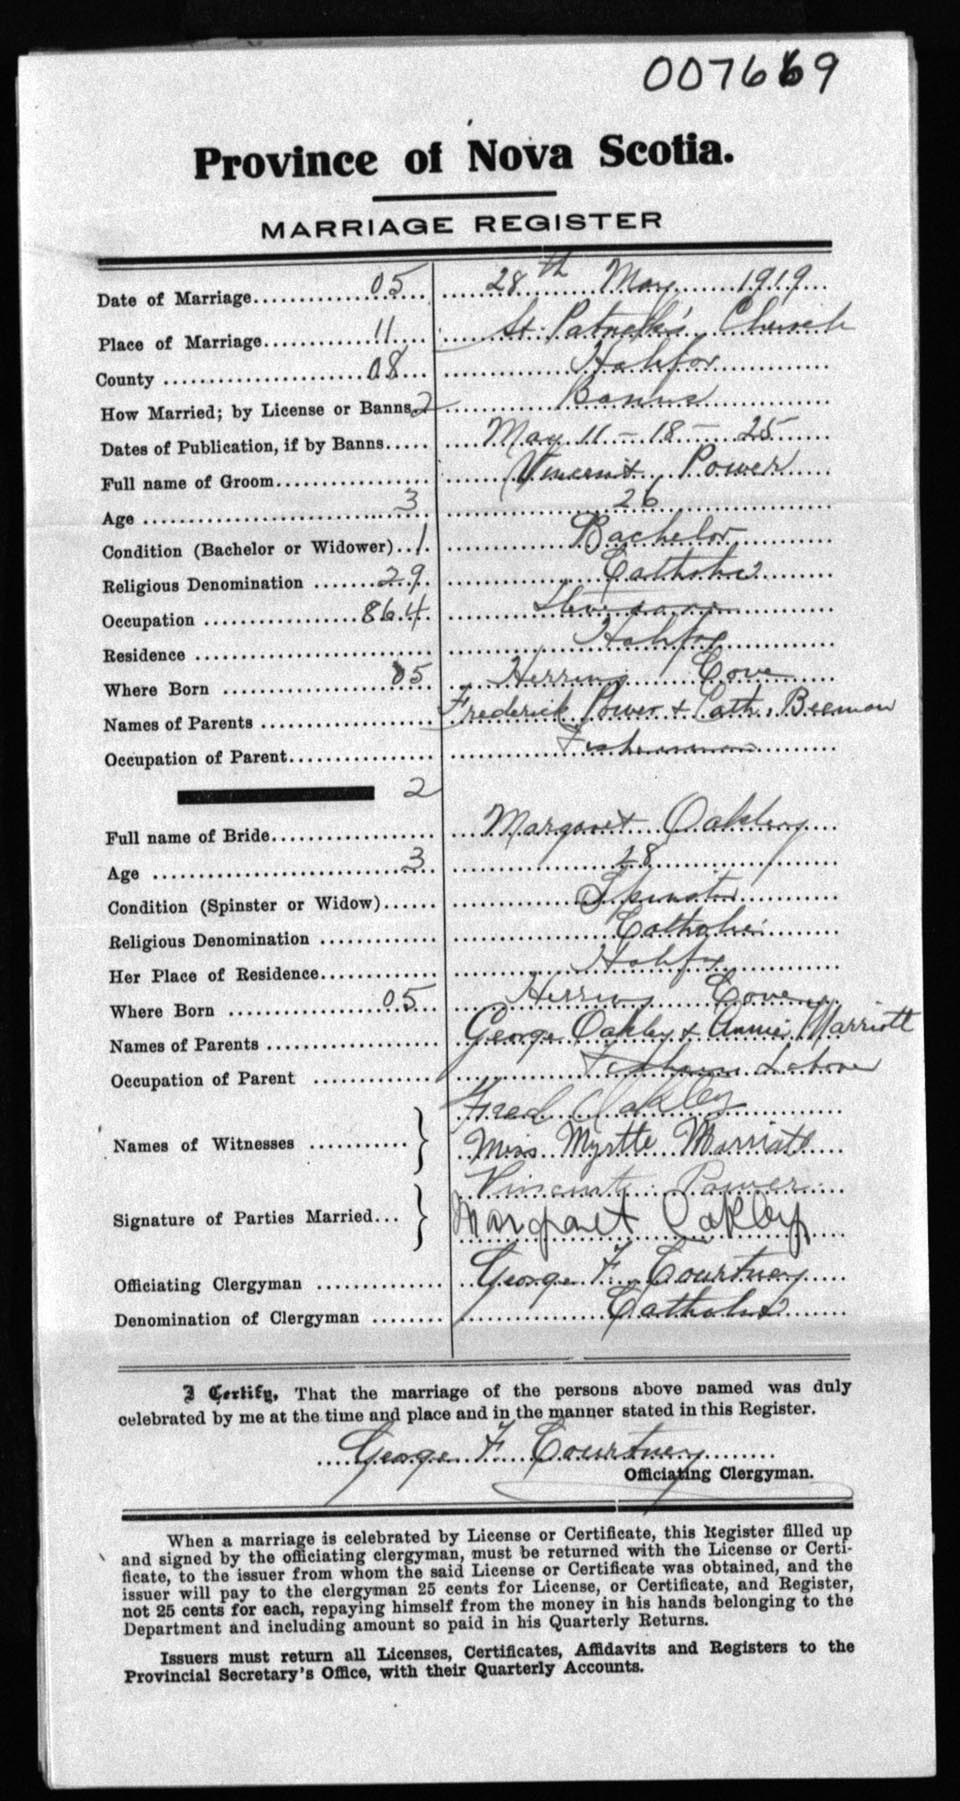 007669
Province of Nova Scotia.
MARRIAGE REGISTER
Date of Marriage 05 28th May 1919
Place of Marriage 11 St. Patrick's Church
County 08 Halifax
How Married; by License or Banns 2 Banns
Dates of Publication, if by Banns May 11 - 18 - 25
Full name of Groom Vincent Power
Age 3 26
Condition (Bachelor or Widower) 1 Bachelor
Religious Denomination 29 Catholic
Occupation 864
Residence Halifax
Where Born 05 Herring Cove
Names of Parents Frederick Power & Cath. Beeman
Occupation of Parent Fisherman
2
Full name of Bride Margaret Oakley
Age 3 28
Condition (Spinster or Widow) Spinster
Religious Denomination Catholic
Her Place of Residence Halifax
Where Born 05 Herring Cove
Names of Parents George Oakley & Annie Marriott
Occupation of Parent
Names of Witnesses Fred Oakley
Miss Myrtle Marriott
Signature of Parties Married Vincent Power
Margaret Oakley
Officiating Clergyman George F. Courtney
Denomination of Clergyman Catholic
I Certify, That the marriage of the persons above named was duly
celebrated by me at the time and place and in the manner stated in this Register.
George F. Courtney
Officiating Clergyman.
When a marriage is celebrated by License or Certificate, this Register filled up
and signed by the officiating clergyman, must be returned with the License or Certi-
ficate, to the issuer from whom the said License or Certificate was obtained, and the
issuer will pay to the clergyman 25 cents for License, or Certificate, and Register,
not 25 cents for each, repaying himself from the money in his hands belonging to the
Department and including amount so paid in his Quarterly Returns.
Issuers must return all Licenses, Certificates, Affidavits and Registers to the
Provincial Secretary's Office, with their Quarterly Accounts.